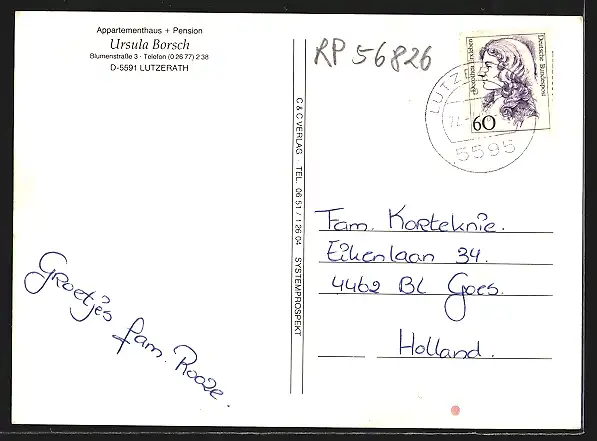 Appartementhaus + Pension
Ursula Borsch
Blumenstraße 3 · Telefon (0 26 77) 2 38
D-5591 LUTZERATH
Groetjes fam. Rooze.
C & C VERLAG · TEL. 06 51 / 1 26 04 SYSTEMPROSPEKT
RP 56826
Deutsche Bundespost
60
LUTZE
5595
Fam. Korteknie.
Eikenlaan 34.
4462 BL Goes.
Holland.